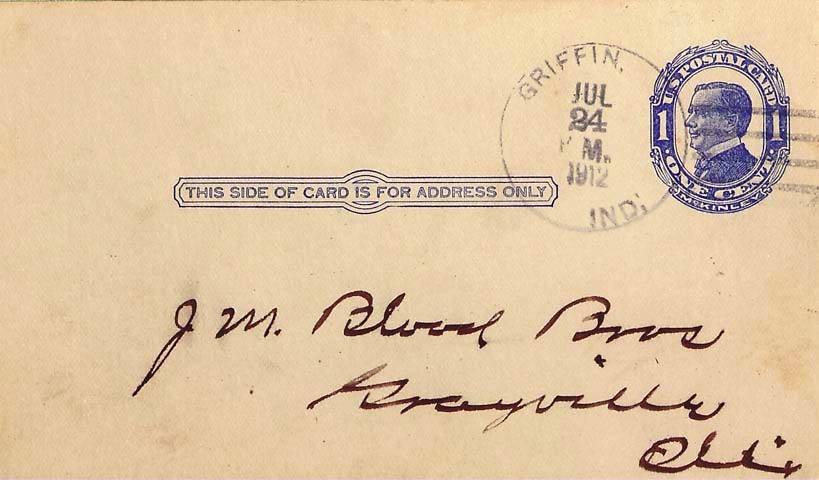 GRIFFIN,
JUL
24
M.
1912
IND.
U.S. POSTAL CARD
1 1
ONE CENT
McKINLEY
THIS SIDE OF CARD IS FOR ADDRESS ONLY
J M. Blood Bros
Grayville
Ills.